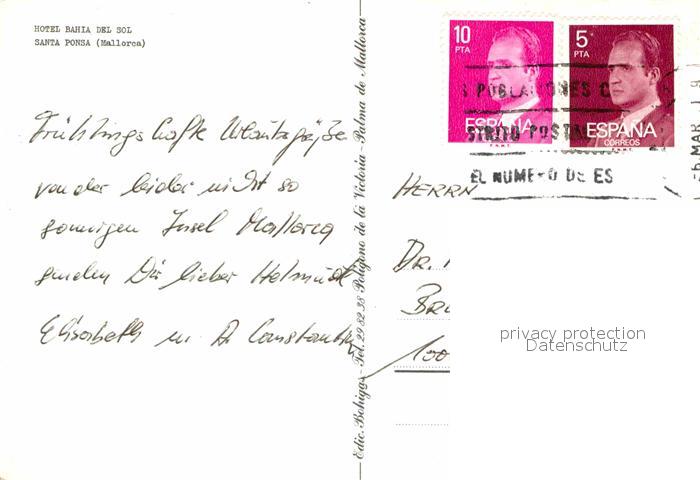 HOTEL BAHIA DEL SOL
SANTA PONSA (Mallorca)
Frühlingshafte Urlaubsgrüße
von der leider nicht so
sonnigen Insel Mallorca
senden Dir lieber Helmut
Elisabeth u.
Edic. Bohigas - Tel. 29 82 38 Polígono de la Victoria - Palma de Mallorca
10
PTA
ESPAÑA
5
PTA
ESPAÑA
CORREOS
F.N.M.T.
POBLACIONES
DISTRITO POSTAL
EL NUMERO DE ES
MAR
HERRN
DR.
privacy protection
Datenschutz